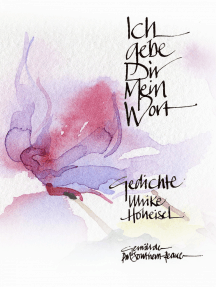 Ich
gebe
Dir
Mein
Wort
Gedichte
Ulrike
Hoheisel
Gemälde